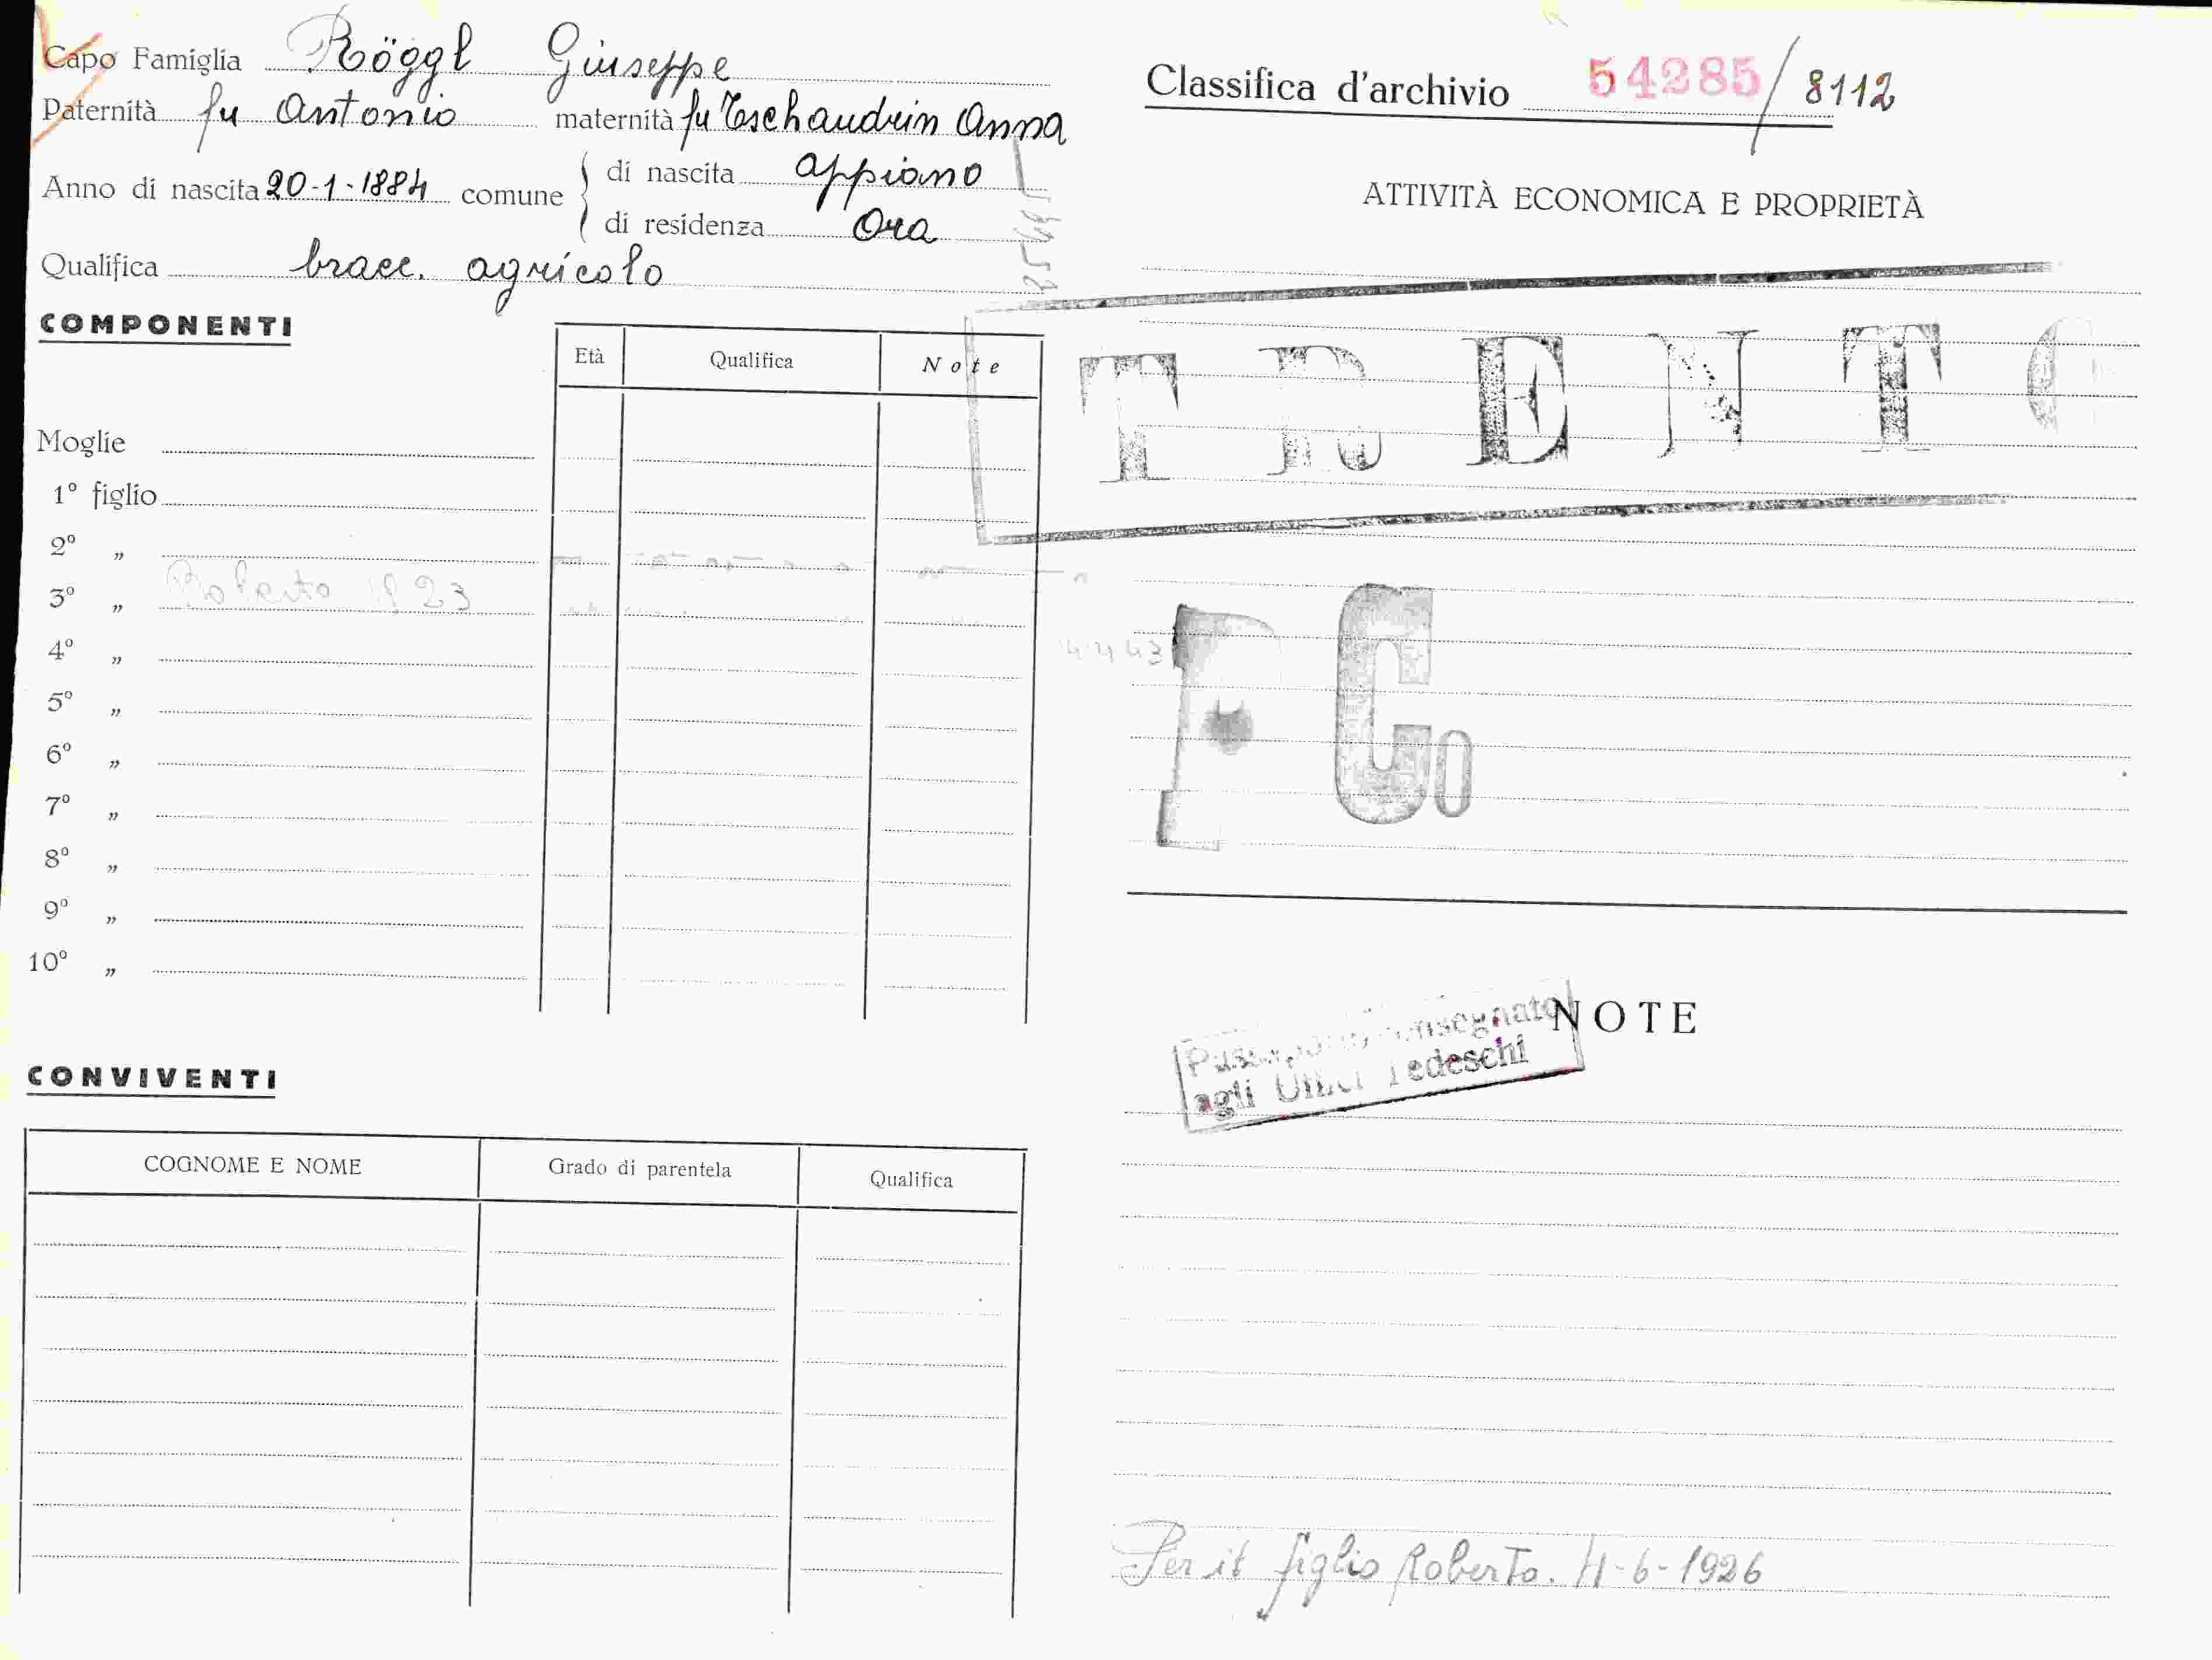 Capo Famiglia Röggl Giuseppe
Paternità fu Antonio maternità fu Tschaudrin Anna
Anno di nascita 20-1-1884 comune di nascita Appiano
di residenza Ora
Qualifica bracc. agricolo
COMPONENTI
Età Qualifica Note
Moglie
1º figlio
2º „
3º „ Roberto 1923
4º „
5º „
6º „
7º „
8º „
9º „
10º „
CONVIVENTI
COGNOME E NOME Grado di parentela Qualifica
Classifica d'archivio 54285/8112
ATTIVITÀ ECONOMICA E PROPRIETÀ
TRENTO
NOTE
agli Uffici Tedeschi
Per il figlio Roberto. 4-6-1926